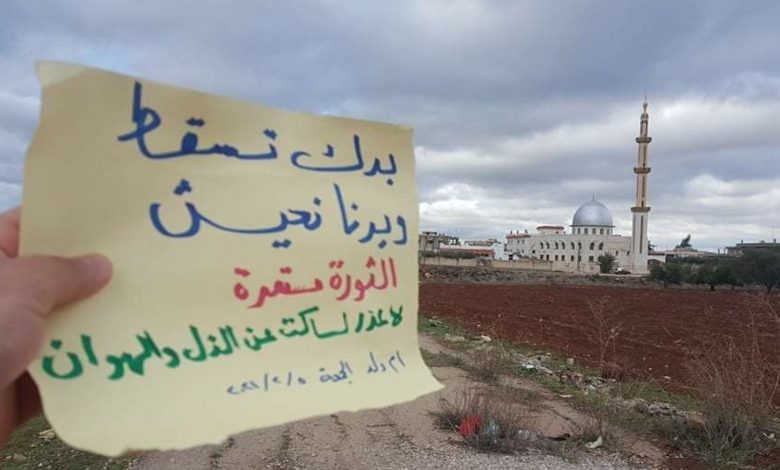 بدك تسقط
وبدنا نعيش
الثورة مستمرة
لا عذر لساكت عن الذل والهوان
ام ولد الجمعة ٢٠٢١/٢/٥